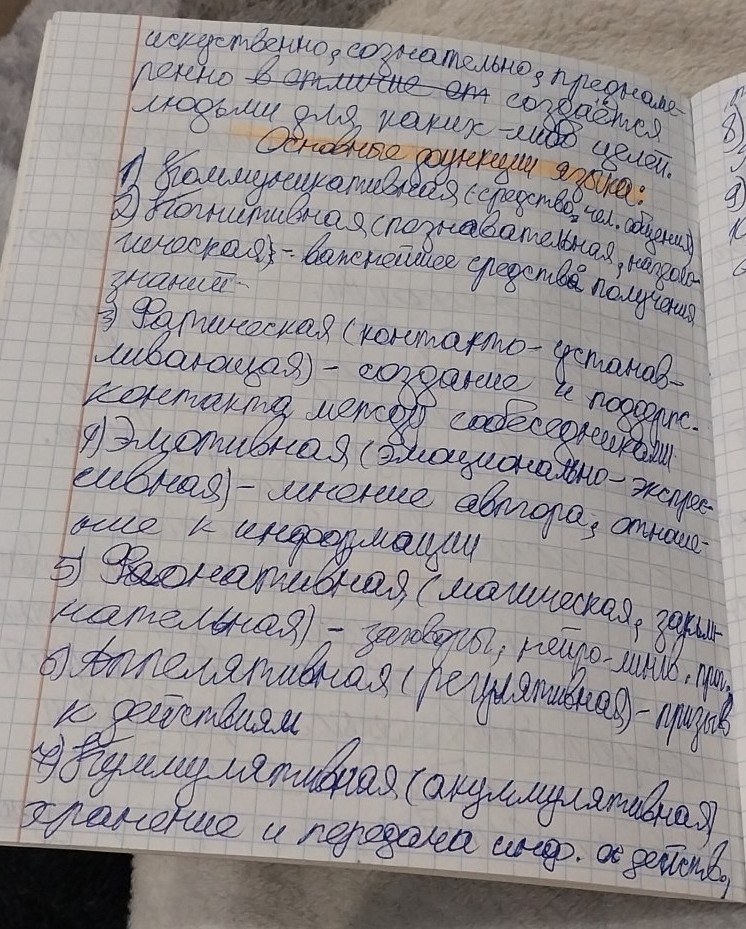 искуственно, сознательно, преднаме-
ренно в отличие от создаётся
людьми для каких-либо целей.
Основные функции языка:
1) Коммуникативная (средство чел. общения)
2) Когнитивная (познавательная,
гическая) - важнейшее средство получения
знаний
3) Фатическая (контакто-устанав-
ливающая) - создание и поддерж.
контакта между собеседниками
4) Эмотивная (эмоционально-экспрес-
сивная) - мнение автора, отноше-
ние к информации
5) (магическая, заклин-
нательная) - заговоры, нейро-линг. прог.
6) Аппелятивная (регулятивная) - призыв
к действиям
7) Куммулятивная (акуммулятивная)
хранение и передача инф. о действ.,
8)
9)